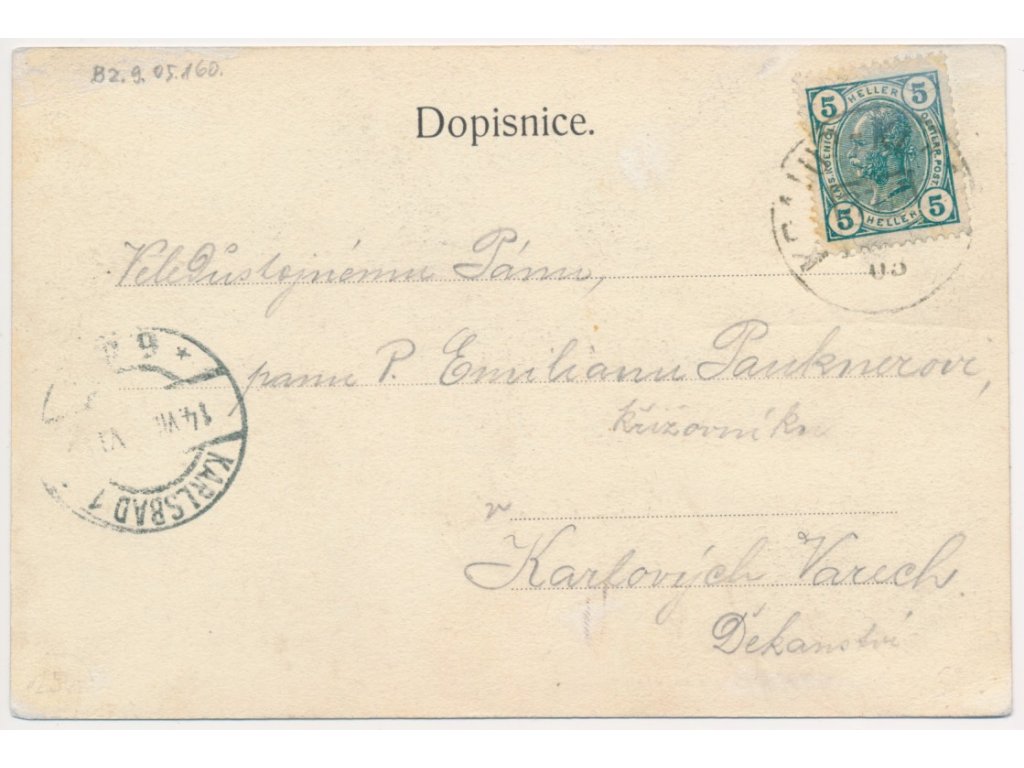 Bz.9.05.160.
Dopisnice.
5 HELLER 5
KAIS. KOENIGL. OESTERR. POST.
5 HELLER 5
05
Veledůstojnému Pánu,
panu P. Emilianu Pauknerovi,
křižovníku
v
Karlových Varech.
Děkanství
* 6
14. VII
KARLSBAD 1